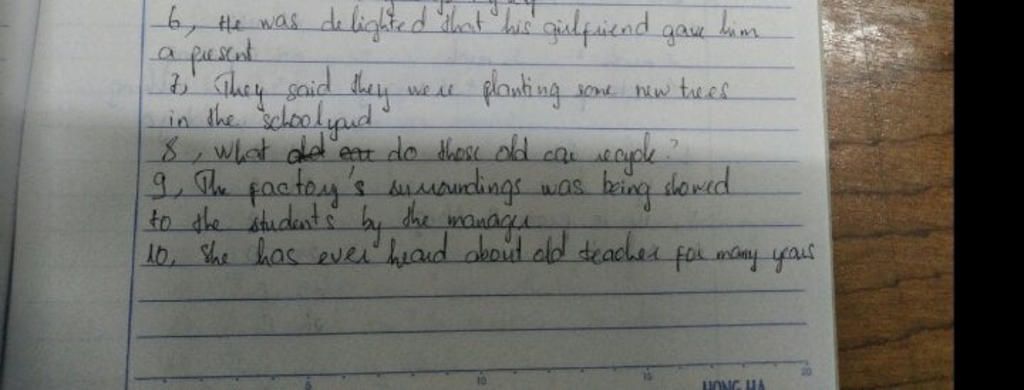 6, He was delighted that his girlfriend gave him
a present
7, They said they were planting some new trees
in the schoolyard
8, What do those old car recycle?
9, The factory's surroundings was being showed
to the students by the manager
10, She has ever heard about old teacher for many years
5 10 15 20
HONG HA